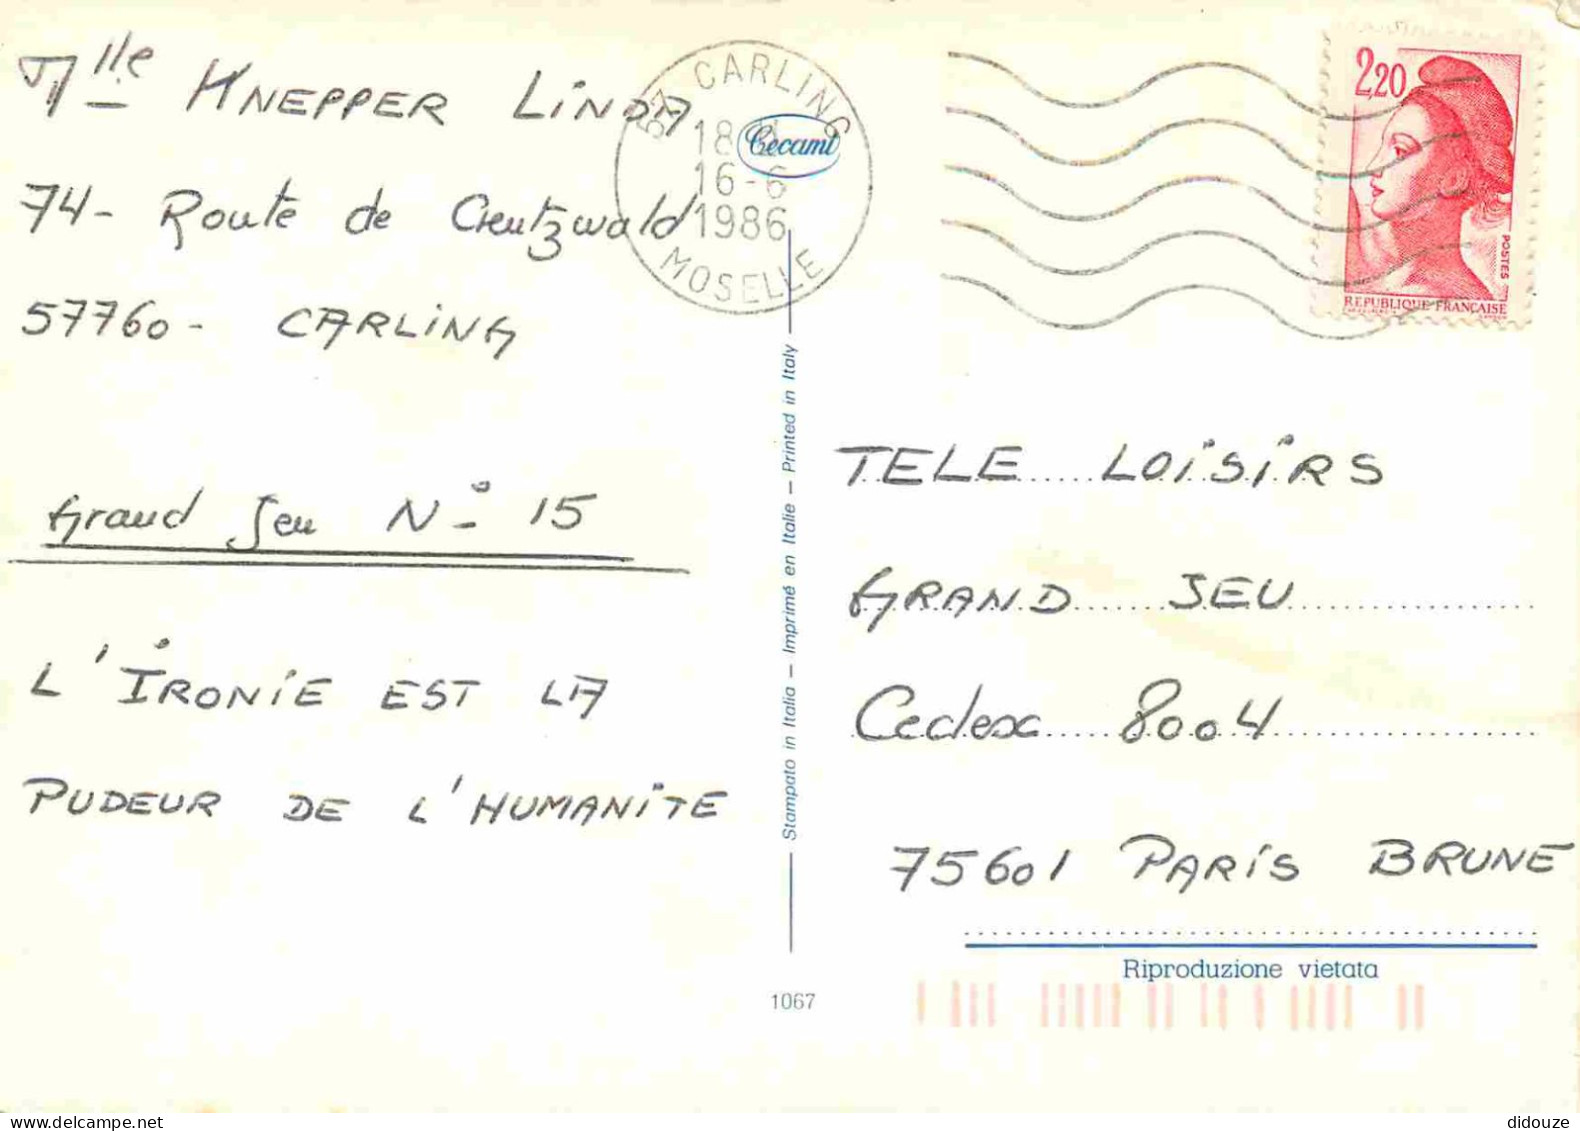 Mlle KNEPPER LINDA
74- Route de Creutzwald
57760- CARLING
Grand Jeu N° 15
L'IRONIE EST LA
PUDEUR DE L'HUMANITE
57 CARLING
18 H
16-6
1986
MOSELLE
Cecami
2,20
POSTES
REPUBLIQUE FRANÇAISE
Stampato in Italia – Imprimé en Italie – Printed in Italy
TELE LOISIRS
GRAND JEU
Cedex 8004
75601 PARIS BRUNE
Riproduzione vietata
1067
didouze